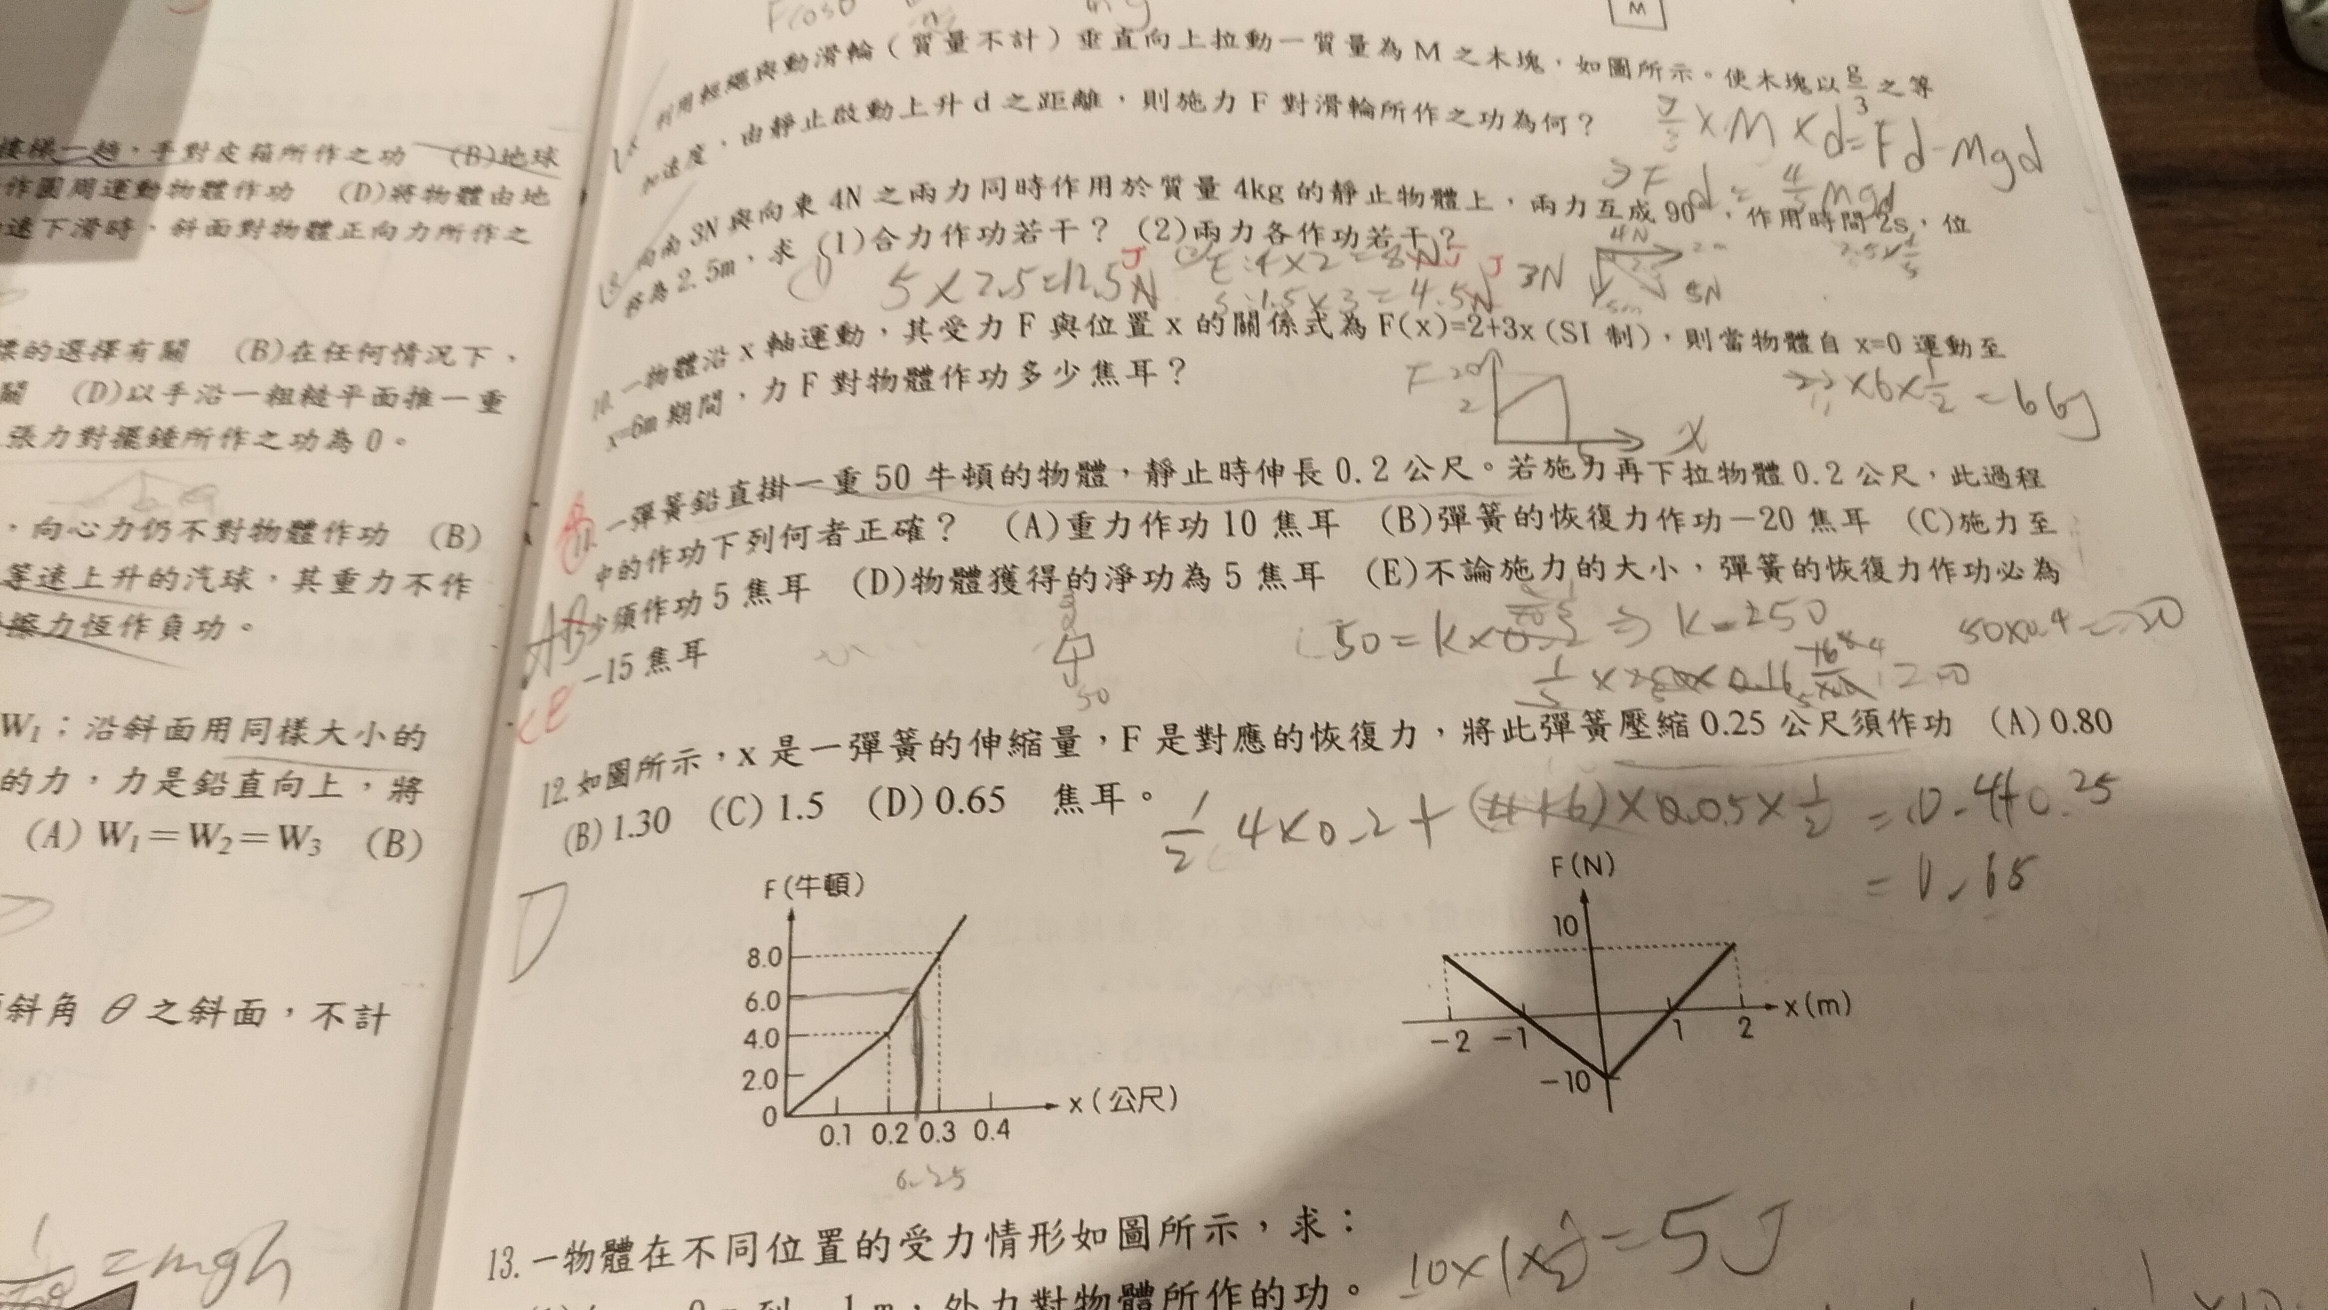 Fcosθ
M
利用輕繩與動滑輪（質量不計）垂直向上拉動一質量為 M 之木塊，如圖所示。使木塊以 g/3 之等
加速度，由靜止啟動上升 d 之距離，則施力 F 對滑輪所作之功為何？
g/3 × M × d = Fd - Mgd
向南 3N 與向東 4N 之兩力同時作用於質量 4kg 的靜止物體上，兩力互成 90°，作用時間 2s，位
移為 2.5m，求 (1)合力作功若干？ (2)兩力各作功若干？
5 × 2.5 = 12.5 N J
E: 4 × 2 = 8 N J
S: 1.5 × 3 = 4.5 N J
3N
4N
2m
5N
10. 一物體沿 x 軸運動，其受力 F 與位置 x 的關係式為 F(x)=2+3x (SI 制)，則當物體自 x=0 運動至
x=6m 期間，力 F 對物體作功多少焦耳？
F
20
2
x
× 6 × 1/2 = 66J
11. 一彈簧鉛直掛一重 50 牛頓的物體，靜止時伸長 0.2 公尺。若施力再下拉物體 0.2 公尺，此過程
中的作功下列何者正確？ (A)重力作功 10 焦耳 (B)彈簧的恢復力作功－20 焦耳 (C)施力至
少須作功 5 焦耳 (D)物體獲得的淨功為 5 焦耳 (E)不論施力的大小，彈簧的恢復力作功必為
－15 焦耳
A
CE
50
50 = k × 0.2 ⇒ k = 250
50×0.4 = 20
12. 如圖所示，x 是一彈簧的伸縮量，F 是對應的恢復力，將此彈簧壓縮 0.25 公尺須作功 (A) 0.80
(B) 1.30 (C) 1.5 (D) 0.65 焦耳。
1/2 4×0.2 + (4+6)×0.05×1/2 = 0.4+0.25
= 0.65
D
F(牛頓)
8.0
6.0
4.0
2.0
0
0.1 0.2 0.3 0.4
x(公尺)
0.25
F(N)
10
-2 -1 1 2
x(m)
-10
13. 一物體在不同位置的受力情形如圖所示，求：
10×1×1/2 = 5J
外力對物體所作的功。
樓梯一趟，手對皮箱所作之功 (B)地球
作圓周運動物體作功 (D)將物體由地
速下滑時，斜面對物體正向力所作之
標的選擇有關 (B)在任何情況下，
關 (D)以手沿一粗糙平面推一重
張力對擺錘所作之功為 0。
，向心力仍不對物體作功 (B)
等速上升的汽球，其重力不作
擦力恆作負功。
W₁；沿斜面用同樣大小的
的力，力是鉛直向上，將
(A) W₁＝W₂＝W₃ (B)
傾斜角 θ 之斜面，不計
= mgh